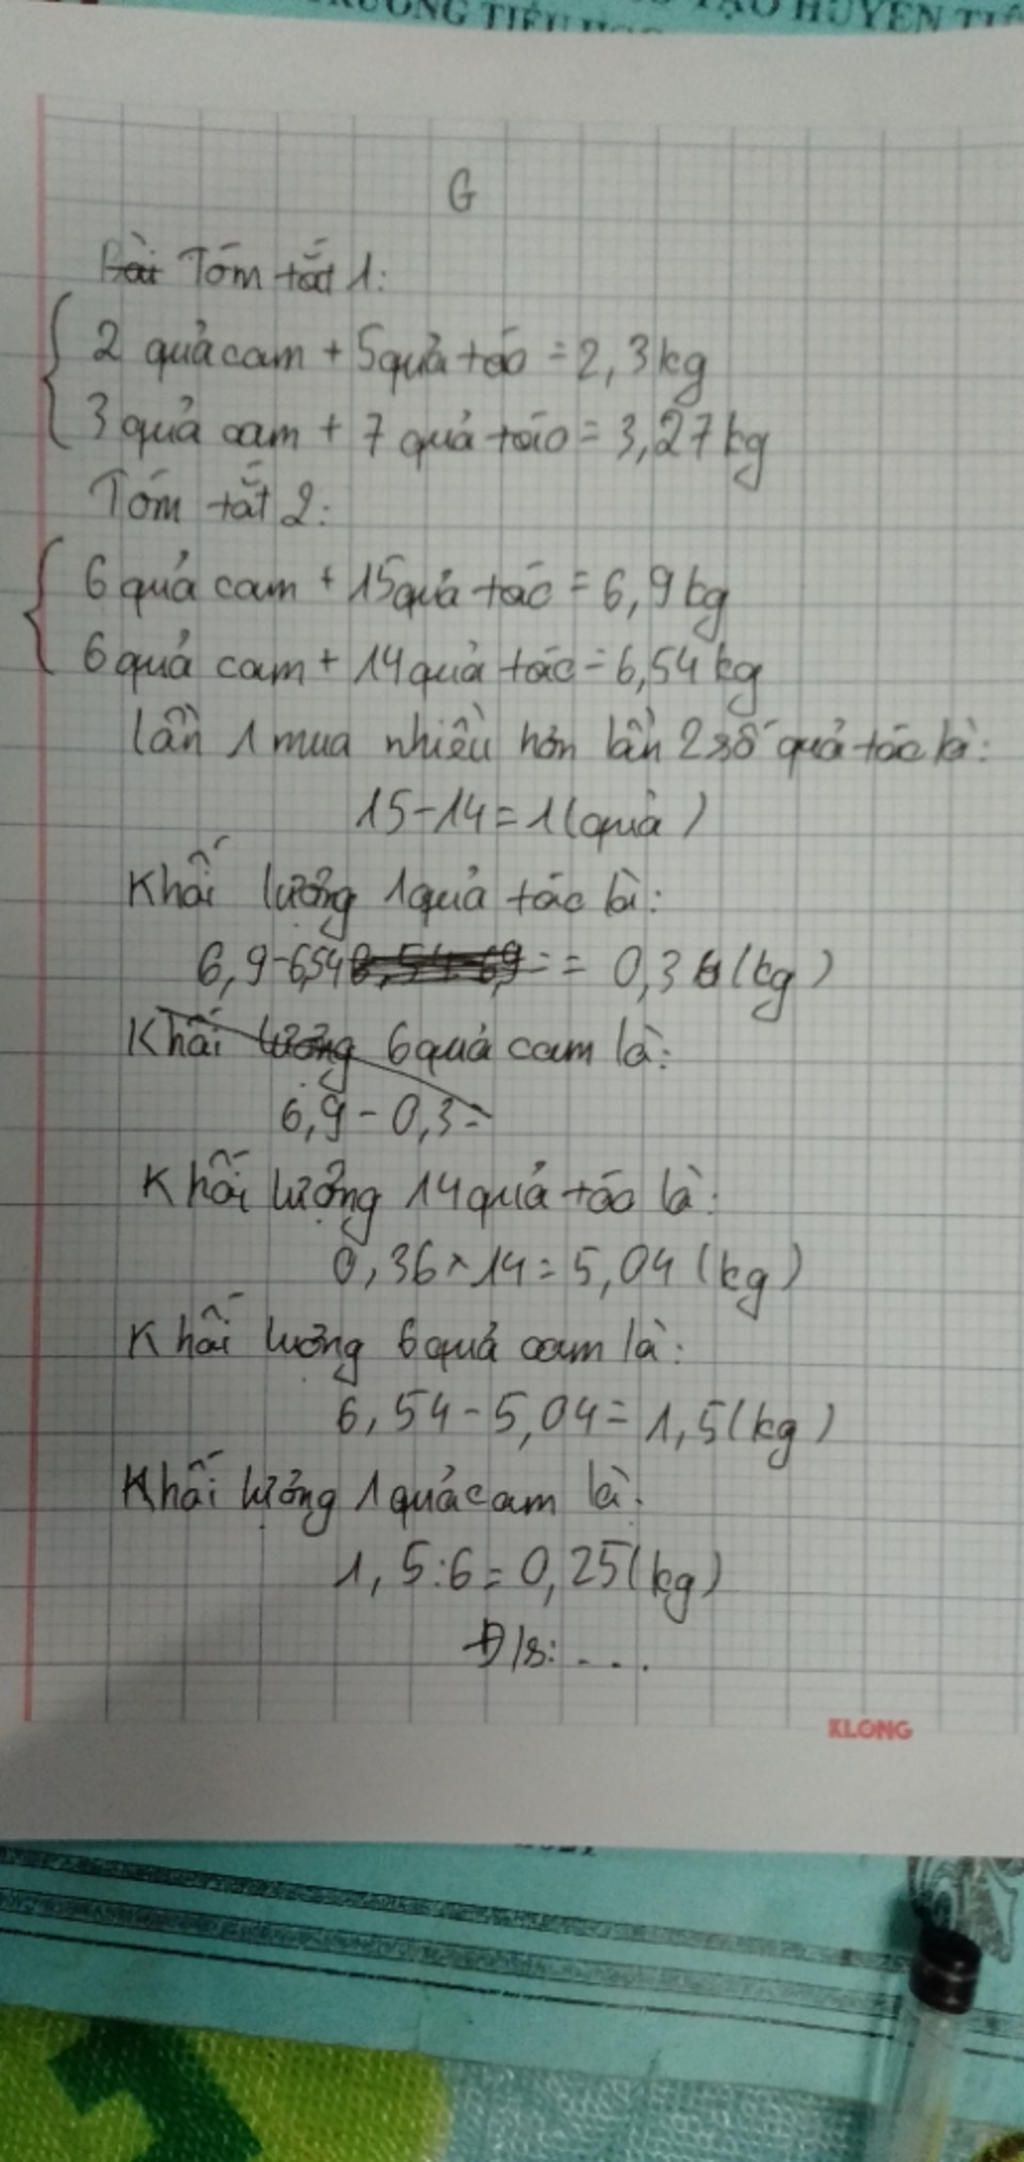 TRƯỜNG TIỂU HỌC
TẠO HUYỆN
G
Bài Tóm tắt 1:
2 quả cam + 5 quả táo = 2,3 kg
3 quả cam + 7 quả táo = 3,27 kg
Tóm tắt 2:
6 quả cam + 15 quả táo = 6,9 kg
6 quả cam + 14 quả táo = 6,54 kg
Lần 1 mua nhiều hơn lần 2 số quả táo là:
15 - 14 = 1 (quả)
Khối lượng 1 quả táo là:
6,9 - 6,54 = = 0,36 (kg)
Khối lượng 6 quả cam là:
6,9 - 0,3 =
Khối lượng 14 quả táo là:
0,36 × 14 = 5,04 (kg)
Khối lượng 6 quả cam là:
6,54 - 5,04 = 1,5 (kg)
Khối lượng 1 quả cam là:
1,5 : 6 = 0,25 (kg)
Đ/s: . . .
KLONG